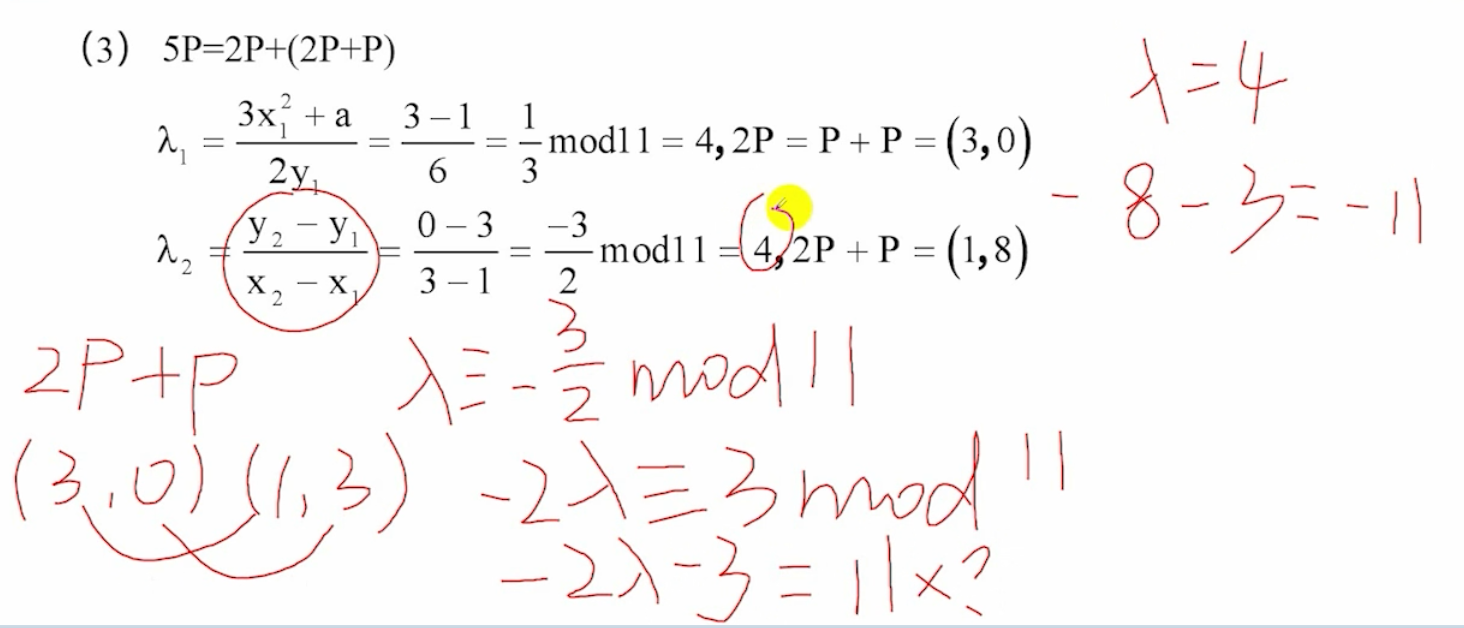 (3) 5P=2P+(2P+P)
λ₁ = (3x₁² + a)/(2y₁) = (3 − 1)/6 = 1/3 mod11 = 4, 2P = P + P = (3,0)
λ₂ = (y₂ − y₁)/(x₂ − x₁) = (0 − 3)/(3 − 1) = −3/2 mod11 = 4, 2P + P = (1,8)
λ=4
-8-3=-11
2P+P
(3,0) (1,3)
λ≡-3/2 mod 11
-2λ≡3 mod 11
-2λ-3=11×?